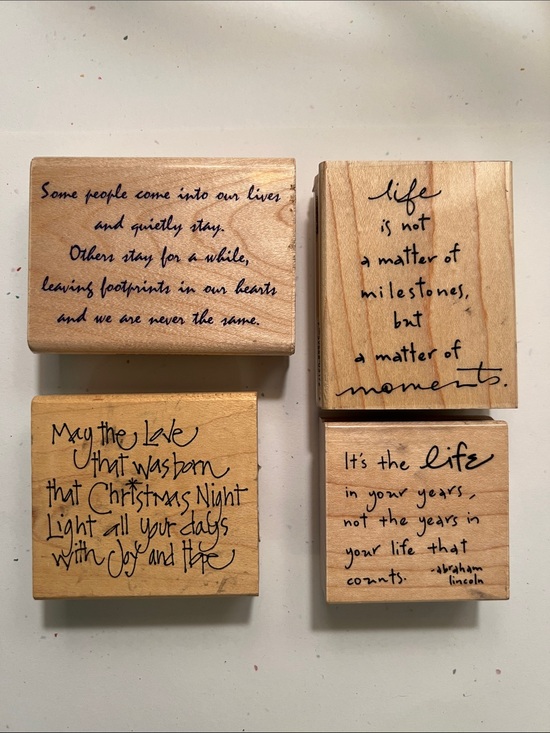 Some people come into our lives
and quietly stay.
Others stay for a while,
leaving footprints in our hearts
and we are never the same.
life
is not
a matter of
milestones,
but
a matter of
moments.
May the Love
that was born
that Christmas Night
Light all your days
with Joy and Hope
It's the life
in your years,
not the years in
your life that
counts. -abraham
lincoln